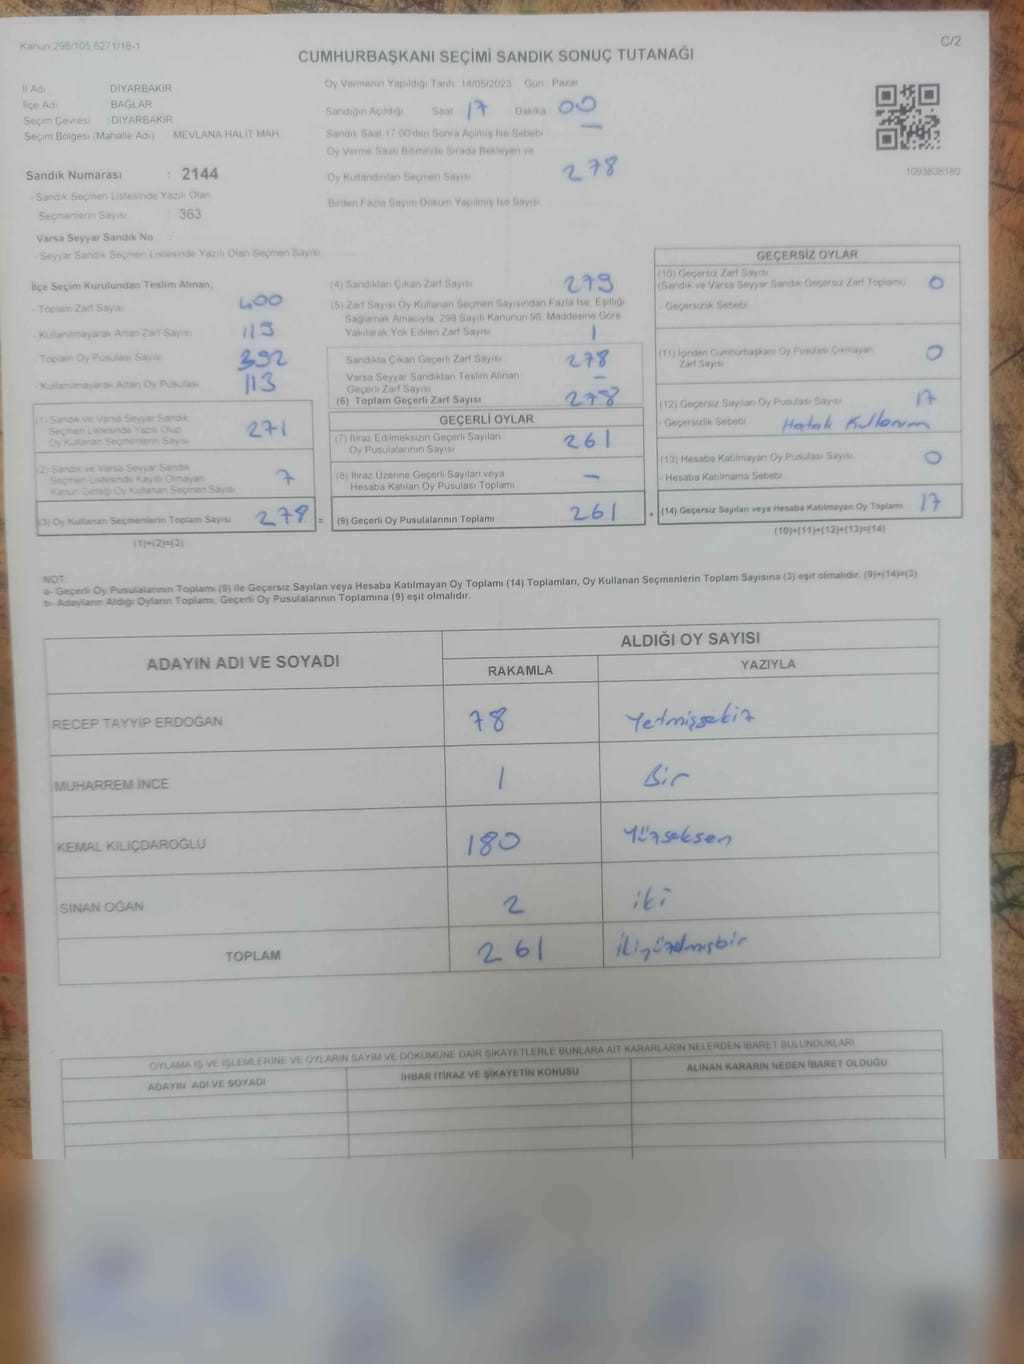 Kanun 298/105,6271/18-1
C/2
CUMHURBAŞKANI SEÇİMİ SANDIK SONUÇ TUTANAĞI
İl Adı DİYARBAKIR
İlçe Adı BAĞLAR
Seçim Çevresi : DİYARBAKIR
Seçim Bölgesi (Mahalle Adı) MEVLANA HALİT MAH.
Sandık Numarası : 2144
- Sandık Seçmen Listesinde Yazılı Olan
Seçmenlerin Sayısı : 363
Varsa Seyyar Sandık No :
- Seyyar Sandık Seçmen Listesinde Yazılı Olan Seçmen Sayısı
Oy Vermenin Yapıldığı Tarih: 14/05/2023 Gün: Pazar
Sandığın Açıldığı Saat 17 Dakika 00
Sandık Saat 17:00'den Sonra Açılmış İse Sebebi —
Oy Verme Saati Bitiminde Sırada Bekleyen ve
Oy Kullandırılan Seçmen Sayısı 278
Birden Fazla Sayım Döküm Yapılmış İse Sayısı
1093838180
İlçe Seçim Kurulundan Teslim Alınan;
- Toplam Zarf Sayısı 400
- Kullanılmayarak Artan Zarf Sayısı
- Toplam Oy Pusulası Sayısı 392
- Kullanılmayarak Artan Oy Pusulası 113
(1) Sandık ve Varsa Seyyar Sandık
Seçmen Listesinde Yazılı Olup
Oy Kullanan Seçmenlerin Sayısı 271
(2) Sandık ve Varsa Seyyar Sandık
Seçmen Listesinde Kayıtlı Olmayan
Kanun Gereği Oy Kullanan Seçmen Sayısı 7
(3) Oy Kullanan Seçmenlerin Toplam Sayısı 278 =
(1)+(2)=(3)
(4) Sandıktan Çıkan Zarf Sayısı 279
(5) Zarf Sayısı Oy Kullanan Seçmen Sayısından Fazla İse, Eşitliği
Sağlamak Amacıyla, 298 Sayılı Kanunun 98. Maddesine Göre
Yakılarak Yok Edilen Zarf Sayısı 1
Sandıkta Çıkan Geçerli Zarf Sayısı 278
Varsa Seyyar Sandıktan Teslim Alınan
Geçerli Zarf Sayısı —
(6) Toplam Geçerli Zarf Sayısı 278
GEÇERLİ OYLAR
(7) İtiraz Edilmeksizin Geçerli Sayılan
Oy Pusulalarının Sayısı 261
(8) İtiraz Üzerine Geçerli Sayılan veya
Hesaba Katılan Oy Pusulası Toplamı —
(9) Geçerli Oy Pusulalarının Toplamı 261 +
GEÇERSİZ OYLAR
(10) Geçersiz Zarf Sayısı
(Sandık ve Varsa Seyyar Sandık Geçersiz Zarf Toplamı) 0
- Geçersizlik Sebebi
(11) İçinden Cumhurbaşkanı Oy Pusulası Çıkmayan
Zarf Sayısı 0
(12) Geçersiz Sayılan Oy Pusulası Sayısı 17
- Geçersizlik Sebebi Hatalı Kullanım
(13) Hesaba Katılmayan Oy Pusulası Sayısı 0
- Hesaba Katılmama Sebebi
(14) Geçersiz Sayılan veya Hesaba Katılmayan Oy Toplamı 17
(10)+(11)+(12)+(13)=(14)
NOT:
a- Geçerli Oy Pusulalarının Toplamı (9) ile Geçersiz Sayılan veya Hesaba Katılmayan Oy Toplamı (14) Toplamları, Oy Kullanan Seçmenlerin Toplam Sayısına (3) eşit olmalıdır. (9)+(14)=(3)
b- Adayların Aldığı Oyların Toplamı, Geçerli Oy Pusulalarının Toplamına (9) eşit olmalıdır.
ADAYIN ADI VE SOYADI
ALDIĞI OY SAYISI
RAKAMLA YAZIYLA
RECEP TAYYİP ERDOĞAN 78 Yetmişsekiz
MUHARREM İNCE 1 Bir
KEMAL KILIÇDAROĞLU 180 Yüzseksen
SİNAN OĞAN 2 iki
TOPLAM 261
OYLAMA İŞ VE İŞLEMLERİNE VE OYLARIN SAYIM VE DÖKÜMÜNE DAİR ŞİKAYETLERLE BUNLARA AİT KARARLARIN NELERDEN İBARET BULUNDUKLARI
ADAYIN ADI VE SOYADI İHBAR İTİRAZ VE ŞİKAYETİN KONUSU ALINAN KARARIN NEDEN İBARET OLDUĞU